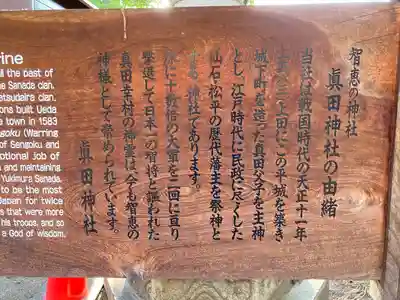 智恵の神社
眞田神社の由緒
当社は戦国時代の天正十一年
城下町を造った真田父子を主神
とし、江戸時代に民政に尽くした
仙石・松平の歴代藩主を祭神と
する神社であります。
殊に十数倍の大軍を二回に亘り
撃退して日本一の智将と謳われた
真田幸村の神霊は、今も智恵の
神様として崇められています。
眞田神社
rine
ll the past of
he Sanada clan,
atsudaira clan.
ons built Ueda
e town in 1583
ngoku (Warring
of Sengoku and
ptional job of
and maintaining
Yukimura Sanada,
to be the most
Japan for twice
s that were more
his troops, and so
a God of wisdom.